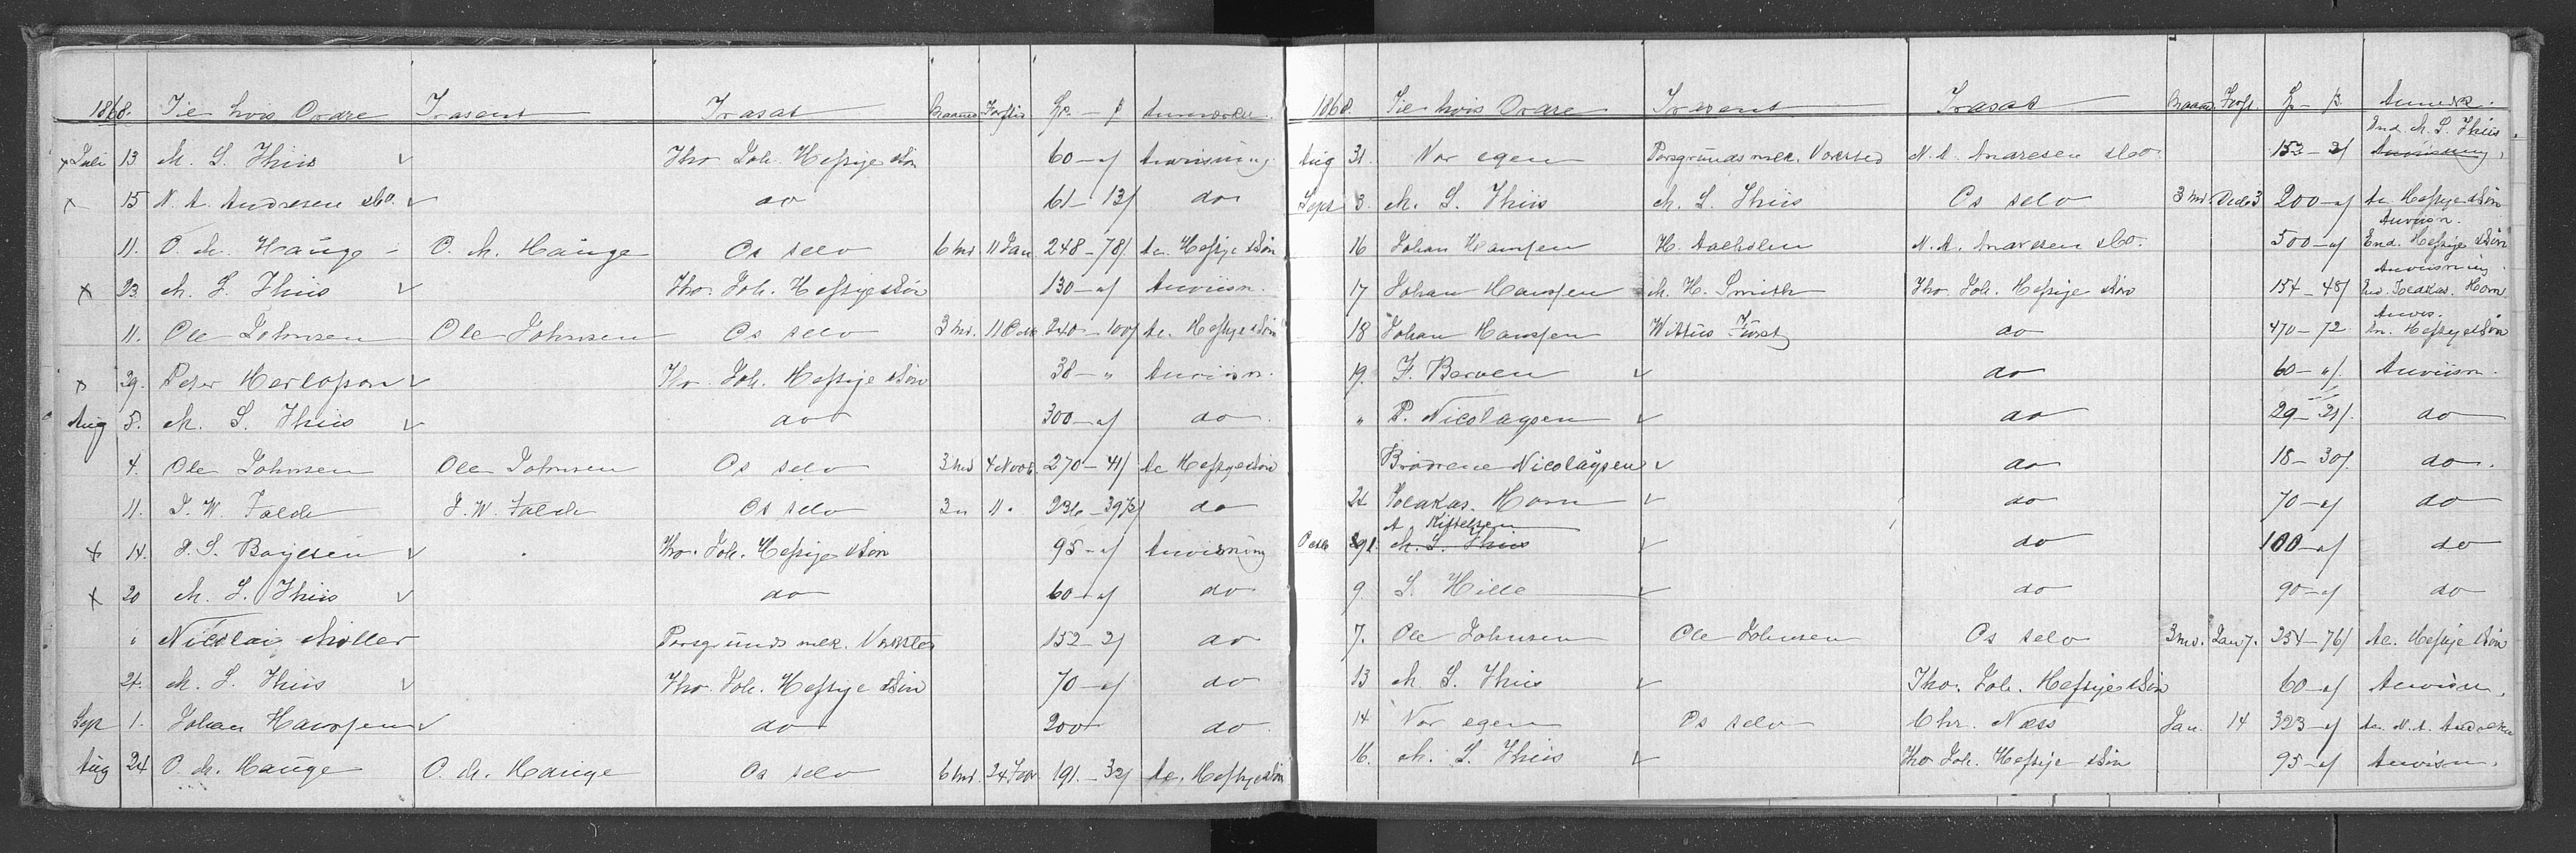 1868. Til hvis Ordre Trasent Trasat Maaned Forfald Sp. – β Anmærkn.
x Juli 13 M. S. Thiis ✓ Tho. Joh. Heftye & Søn 60 – „β Anvisning
x 15 N. A. Andresen & Co. ✓ do 61 – 13β do
11. O. M. Hauge – O. M. Hauge Os selv 6 md 11 Jan 248 – 78β Ac. Heftye & Søn
x 23 M. S. Thiis ✓ Tho. Joh. Heftye & Søn 130 – „β Anviisn.
11. Ole Johnsen Ole Johnsen Os selv 3 md. 11 Octb 240 – 100β Ac. Heftye & Søn
x 29. Peter Herlofson ✓ Tho. Joh. Heftye & Søn 38 – „ Anviisn.
Aug 5. M. S. Thiis ✓ do 300 – „β do
4. Ole Johnsen Ole Johnsen Os selv 3 md 4 Novb. 270 – 41β Ac Heftye & Søn
11. J. W. Falch J. W. Falch Os selv 3 „ 11 „ 236 – 39½β do
x 14. J. S. Bøyesen ✓ Tho. Joh. Heftye & Søn 95 – „β Anvisning
x 20 M. S. Thiis ✓ do 60 – „β do
„ Nicolai Møller Porsgrunds mek. Værksted 152 – 2β do
24. M. S. Thiis ✓ Tho. Joh. Heftye & Søn 70 – „β do
Sept 1. Johan Hanssen ✓ do 200 do
Aug 24 O. M. Hauge O. M. Hauge Os selv 6 md. 24 Febr 191 – 32β Ac. Heftye & Søn
1868. Til hvis Ordre Trasent Trasat Maaned. Forf. Sp – β. Anmærk.
End. M. S. Thiis
Aug 31. Vor egen Porsgrunds mek. Værksted N. A. Andresen & Co. 152 – 2β Anvisning
Sept 3. M. S. Thiis M. S. Thiis Os selv 3 md. Decb 3 200 – „β Ac. Heftye & Søn
Anviisn.
16 Johan Hanssen H. Aaeholm N. A. Andresen & Co. 500 – „β End. Heftye & Søn
Anvisning
17 Johan Hanssen M. H. Smith Tho. Joh. Heftye & Søn 154 – 48β End. Zacakas. Horn
Anvis.
18 Johan Hanssen Wittus Fürst do 470 – 72 An. Heftye & Søn
19. F. Berven ✓ do 60 – „β. Anviisn.
„ P. Nicolaysen ✓ do 29 – 21β. do
Brødrene Nicolaysen ✓ do 18 – 30β. do.
24 Zacakas. Horn ✓ do 70 – „β do
A Kittelsen
Octb 1. M. S. Thiis ✓ do 100 – „β do
9. S. Hille ✓ do 90 – „β do
7. Ole Johnsen Ole Johnsen Os selv 3 md. Jan 7. 254 – 76β Ac. Heftye & Søn
13 M. S. Thiis ✓ Tho. Joh. Heftye & Søn 60 – „β Anviisn.
14 Vor egen Os selv Chr. Næss Jan. 14 323 – „β An. N. A. Andresen
16. M. S. Thiis ✓ Tho Joh. Heftye & Søn 95 – „β Anviisn.